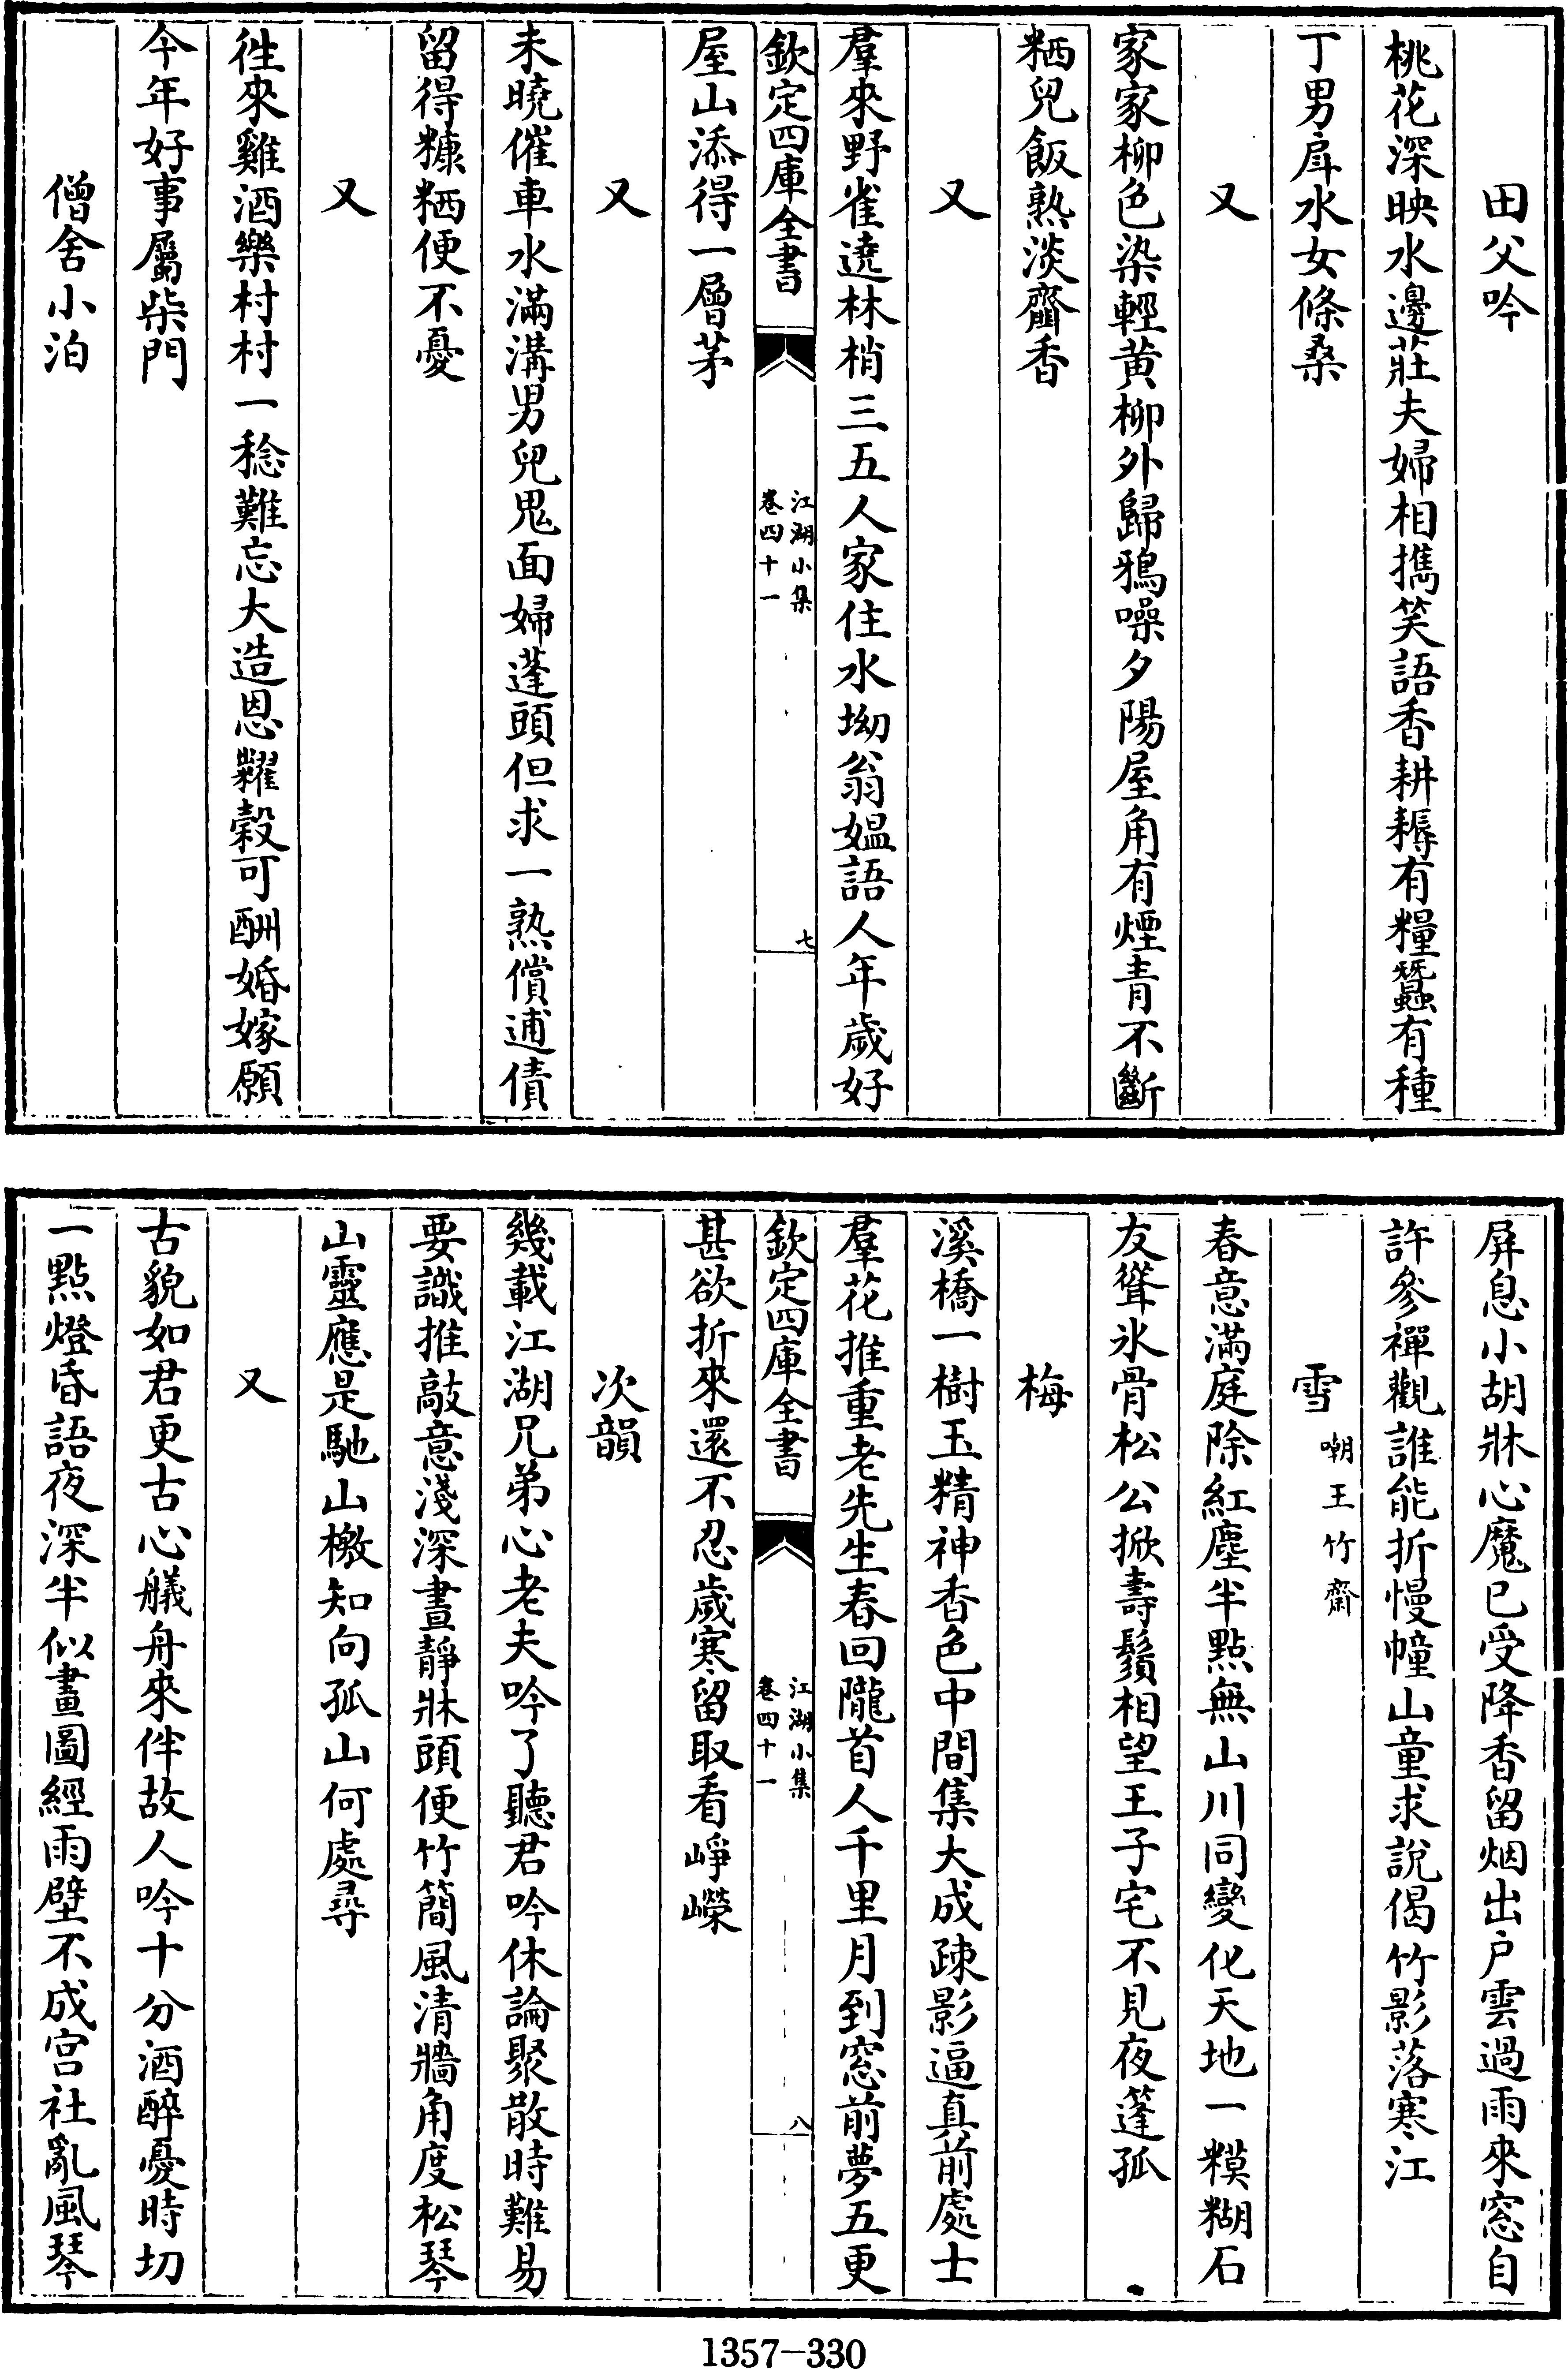 田父吟
桃花深映水邊莊夫婦相擕笑語香耕耨有糧蠶有種
丁男戽水女條桑
又
家家柳色染輕黄柳外歸鴉噪夕陽屋角有煙青不斷
粞兒飯熟淡虀香
又
羣來野雀遶林梢三五人家住水坳翁媪語人年歲好
欽定四庫全書
江湖小集
卷四十一
七
屋山添得一層茅
又
未曉催車水滿溝男兒鬼面婦蓬頭但求一熟償逋債
留得糠粞便不憂
又
徃來雞酒樂村村一稔難忘大造恩糶糓可酬婚嫁願
今年好事屬柴門
僧舍小泊
屏息小胡牀心魔已受降香留烟出户雲過雨來窓自
許參禪觀誰能折慢幢山童求說偈竹影落寒江
雪
嘲王竹齋
春意滿庭除紅塵半點無山川同變化天地一糢糊石
友聳氷骨松公掀壽鬚相望王子宅不見夜篷孤
梅
溪橋一樹玉精神香色中間集大成疎影逼真前處士
羣花推重老先生春回隴首人千里月到窓前夢五更
欽定四庫全書
江湖小集
卷四十一
八
甚欲折來還不忍歲寒留取看崢嶸
次韻
幾載江湖兄弟心老夫吟了聽君吟休論聚散時難易
要識推敲意淺深晝靜牀頭便竹簡風清牆角度松琴
山靈應是馳山檄知向孤山何處尋
又
古貌如君更古心艤舟來伴故人吟十分酒醉憂時切
一點燈昏語夜深半似畫圖經雨壁不成宫社亂風琴
1357-330